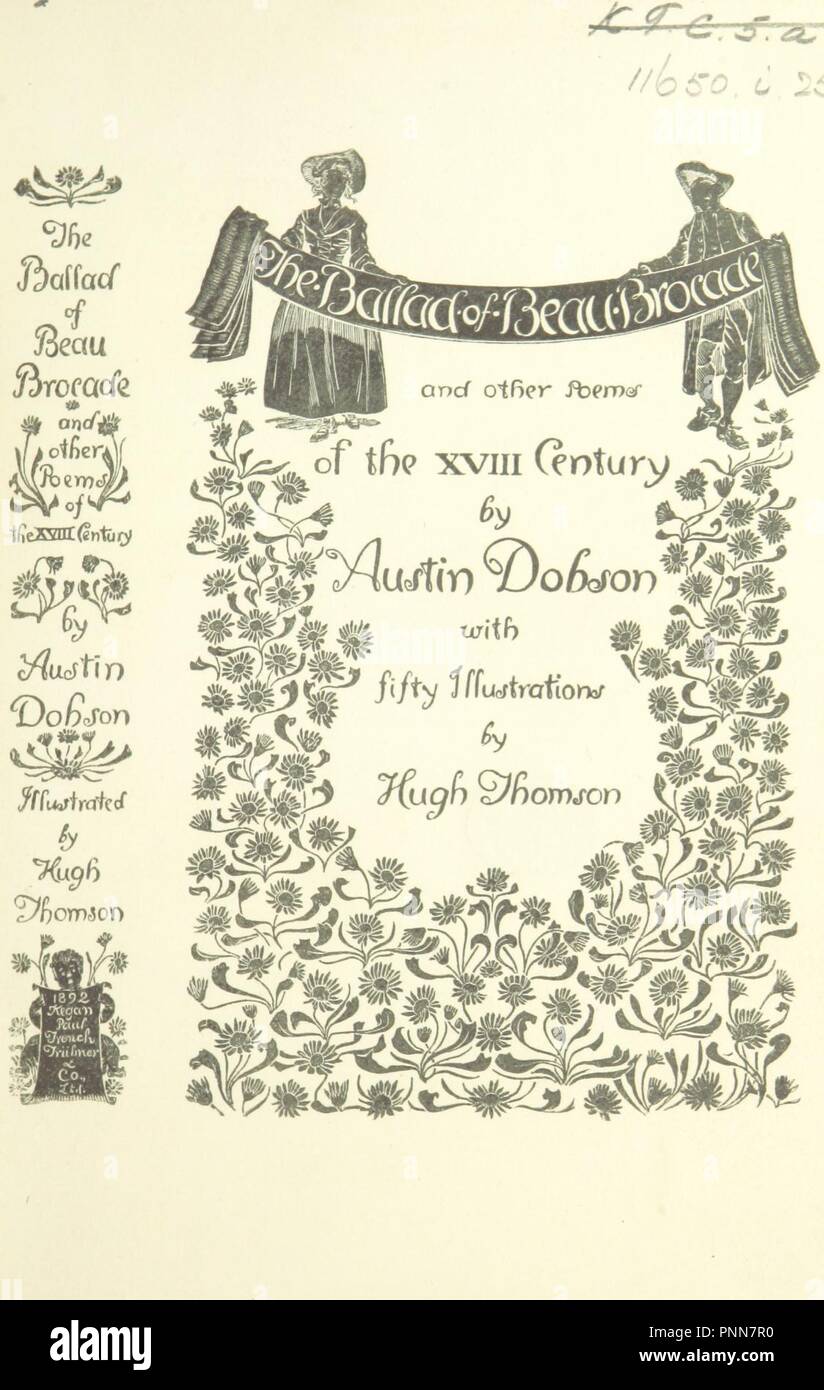 K.T.C. 5. a
11650. i. 25
The
Ballad
of
Beau
Brocade
and
other
Poems
of
the XVIII Century
by
Austin
Dobson
Illustrated
by
Hugh
Thomson
1892
Kegan
Paul
Trench
Trübner
& Co.
Ltd.
The·Ballad·of·Beau·Brocade
and other Poems
of the XVIII Century
by
Austin Dobson
with
fifty Illustrations
by
Hugh Thomson
alamy
alamy
Image ID: PNN7R0
www.alamy.com